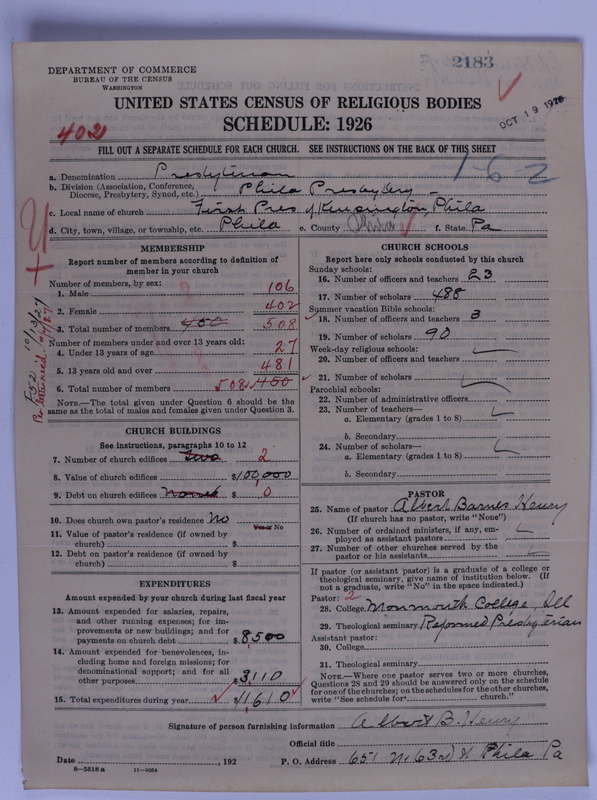 2183
DEPARTMENT OF COMMERCE
BUREAU OF THE CENSUS
WASHINGTON
OCT 19 1926
UNITED STATES CENSUS OF RELIGIOUS BODIES
402
SCHEDULE: 1926
FILL OUT A SEPARATE SCHEDULE FOR EACH CHURCH. SEE INSTRUCTIONS ON THE BACK OF THIS SHEET
1-6-2
a. Denomination Presbyterian
b. Division (Association, Conference, Diocese, Presbytery, Synod, etc.) Phila Presbytery
c. Local name of church First Pres of Kensington, Phila
d. City, town, village, or township, etc. Phila e. County Phila f. State Pa
MEMBERSHIP
Report number of members according to definition of
member in your church
Number of members, by sex:
1. Male 106
2. Female 402
3. Total number of members 450 508
Number of members under and over 13 years old:
4. Under 13 years of age 27
5. 13 years old and over 481
6. Total number of members 508 450
NOTE.—The total given under Question 6 should be the
same as the total of males and females given under Question 3.
CHURCH BUILDINGS
See instructions, paragraphs 10 to 12
7. Number of church edifices Two 2
8. Value of church edifices $100,000
9. Debt on church edifices $ 0
10. Does church own pastor's residence No
Yes or No
11. Value of pastor's residence (if owned by
church) $
12. Debt on pastor's residence (if owned by
church) $
EXPENDITURES
Amount expended by your church during last fiscal year
13. Amount expended for salaries, repairs,
and other running expenses; for im-
provements or new buildings; and for
payments on church debt $8500
14. Amount expended for benevolences, in-
cluding home and foreign missions; for
denominational support; and for all
other purposes $3110
15. Total expenditures during year $11610
CHURCH SCHOOLS
Report here only schools conducted by this church
Sunday schools:
16. Number of officers and teachers 23
17. Number of scholars 488
Summer vacation Bible schools:
18. Number of officers and teachers 3
19. Number of scholars 90
Week-day religious schools:
20. Number of officers and teachers
21. Number of scholars
Parochial schools:
22. Number of administrative officers
23. Number of teachers—
a. Elementary (grades 1 to 8)
b. Secondary
24. Number of scholars—
a. Elementary (grades 1 to 8)
b. Secondary
PASTOR
25. Name of pastor Albert Barnes Henry
(If church has no pastor, write "None")
26. Number of ordained ministers, if any, em-
ployed as assistant pastors
27. Number of other churches served by the
pastor or his assistants
If pastor (or assistant pastor) is a graduate of a college or
theological seminary, give name of institution below. (If
not a graduate, write "No" in the space indicated.)
Pastor: 2
28. College Monmouth College, Ill
29. Theological seminary Reformed Presbyterian
Assistant pastor:
30. College
31. Theological seminary
NOTE.—Where one pastor serves two or more churches,
Questions 28 and 29 should be answered only on the schedule
for one of the churches; on the schedules for the other churches,
write "See schedule for church."
Signature of person furnishing information Albert B. Henry
Official title
Date , 192 P. O. Address 651 N. 63rd St Phila Pa
8-5518 a 11-9064